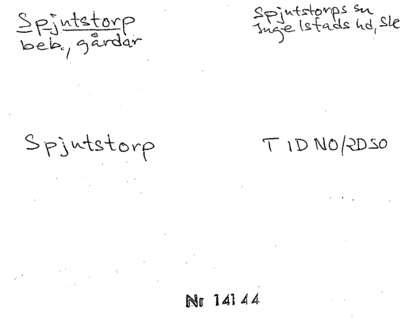 Spjutstorp
beb., gårdar
Spjutstorps sn
Ingelstads hd, Sk
Spjutstorp
T IDNO/RDSO
Nr 14144